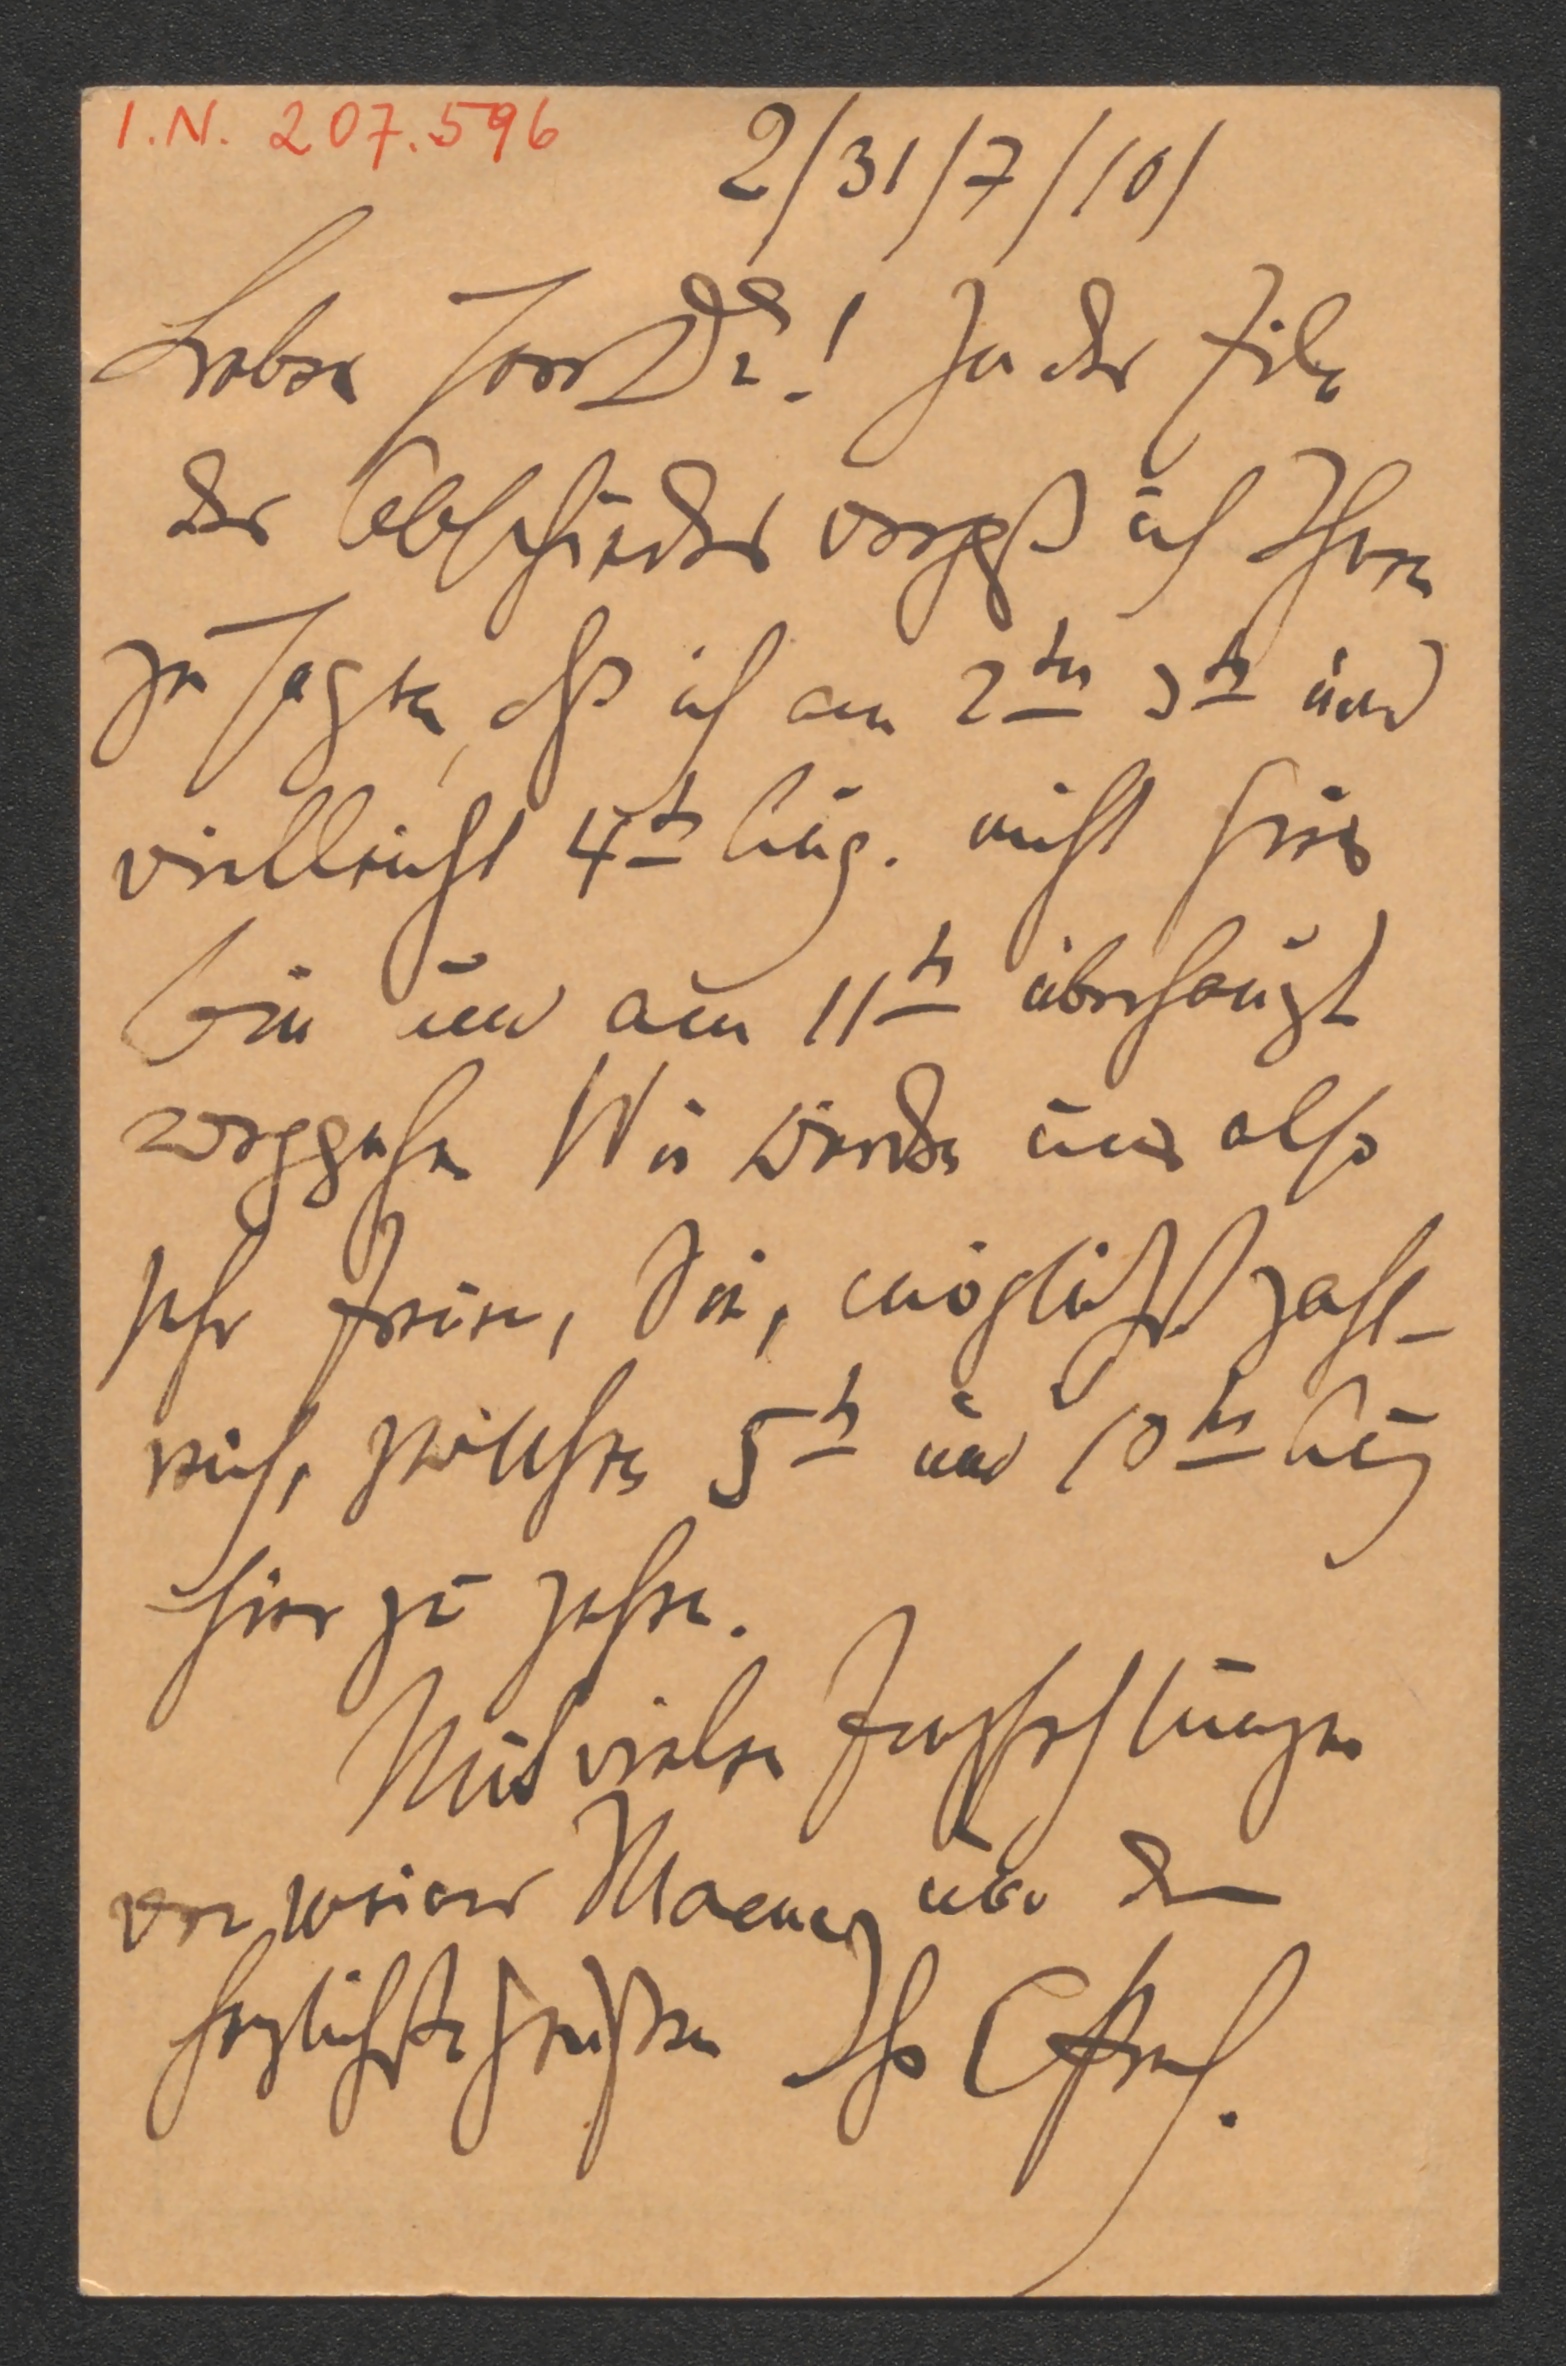 I.N. 207.596
2/31/7/10/
Lieber Herr Dr.! In der Eile
der Abschiedes vergaß ich Ihnen
zu sagen, daß ich am 2ten 3ten und
vielleicht 4ten Aug. nicht hier
bin und am 11ten überhaupt
weggehe. Wir werden uns also
sehr freuen, Sie, möglichst zahl-
reich, zwischen 5ten und 10ten Aug
hier zu sehen.
Mit vielen Empfehlungen
von meiner Mama und den
herzlichsten Grüßen Ihr